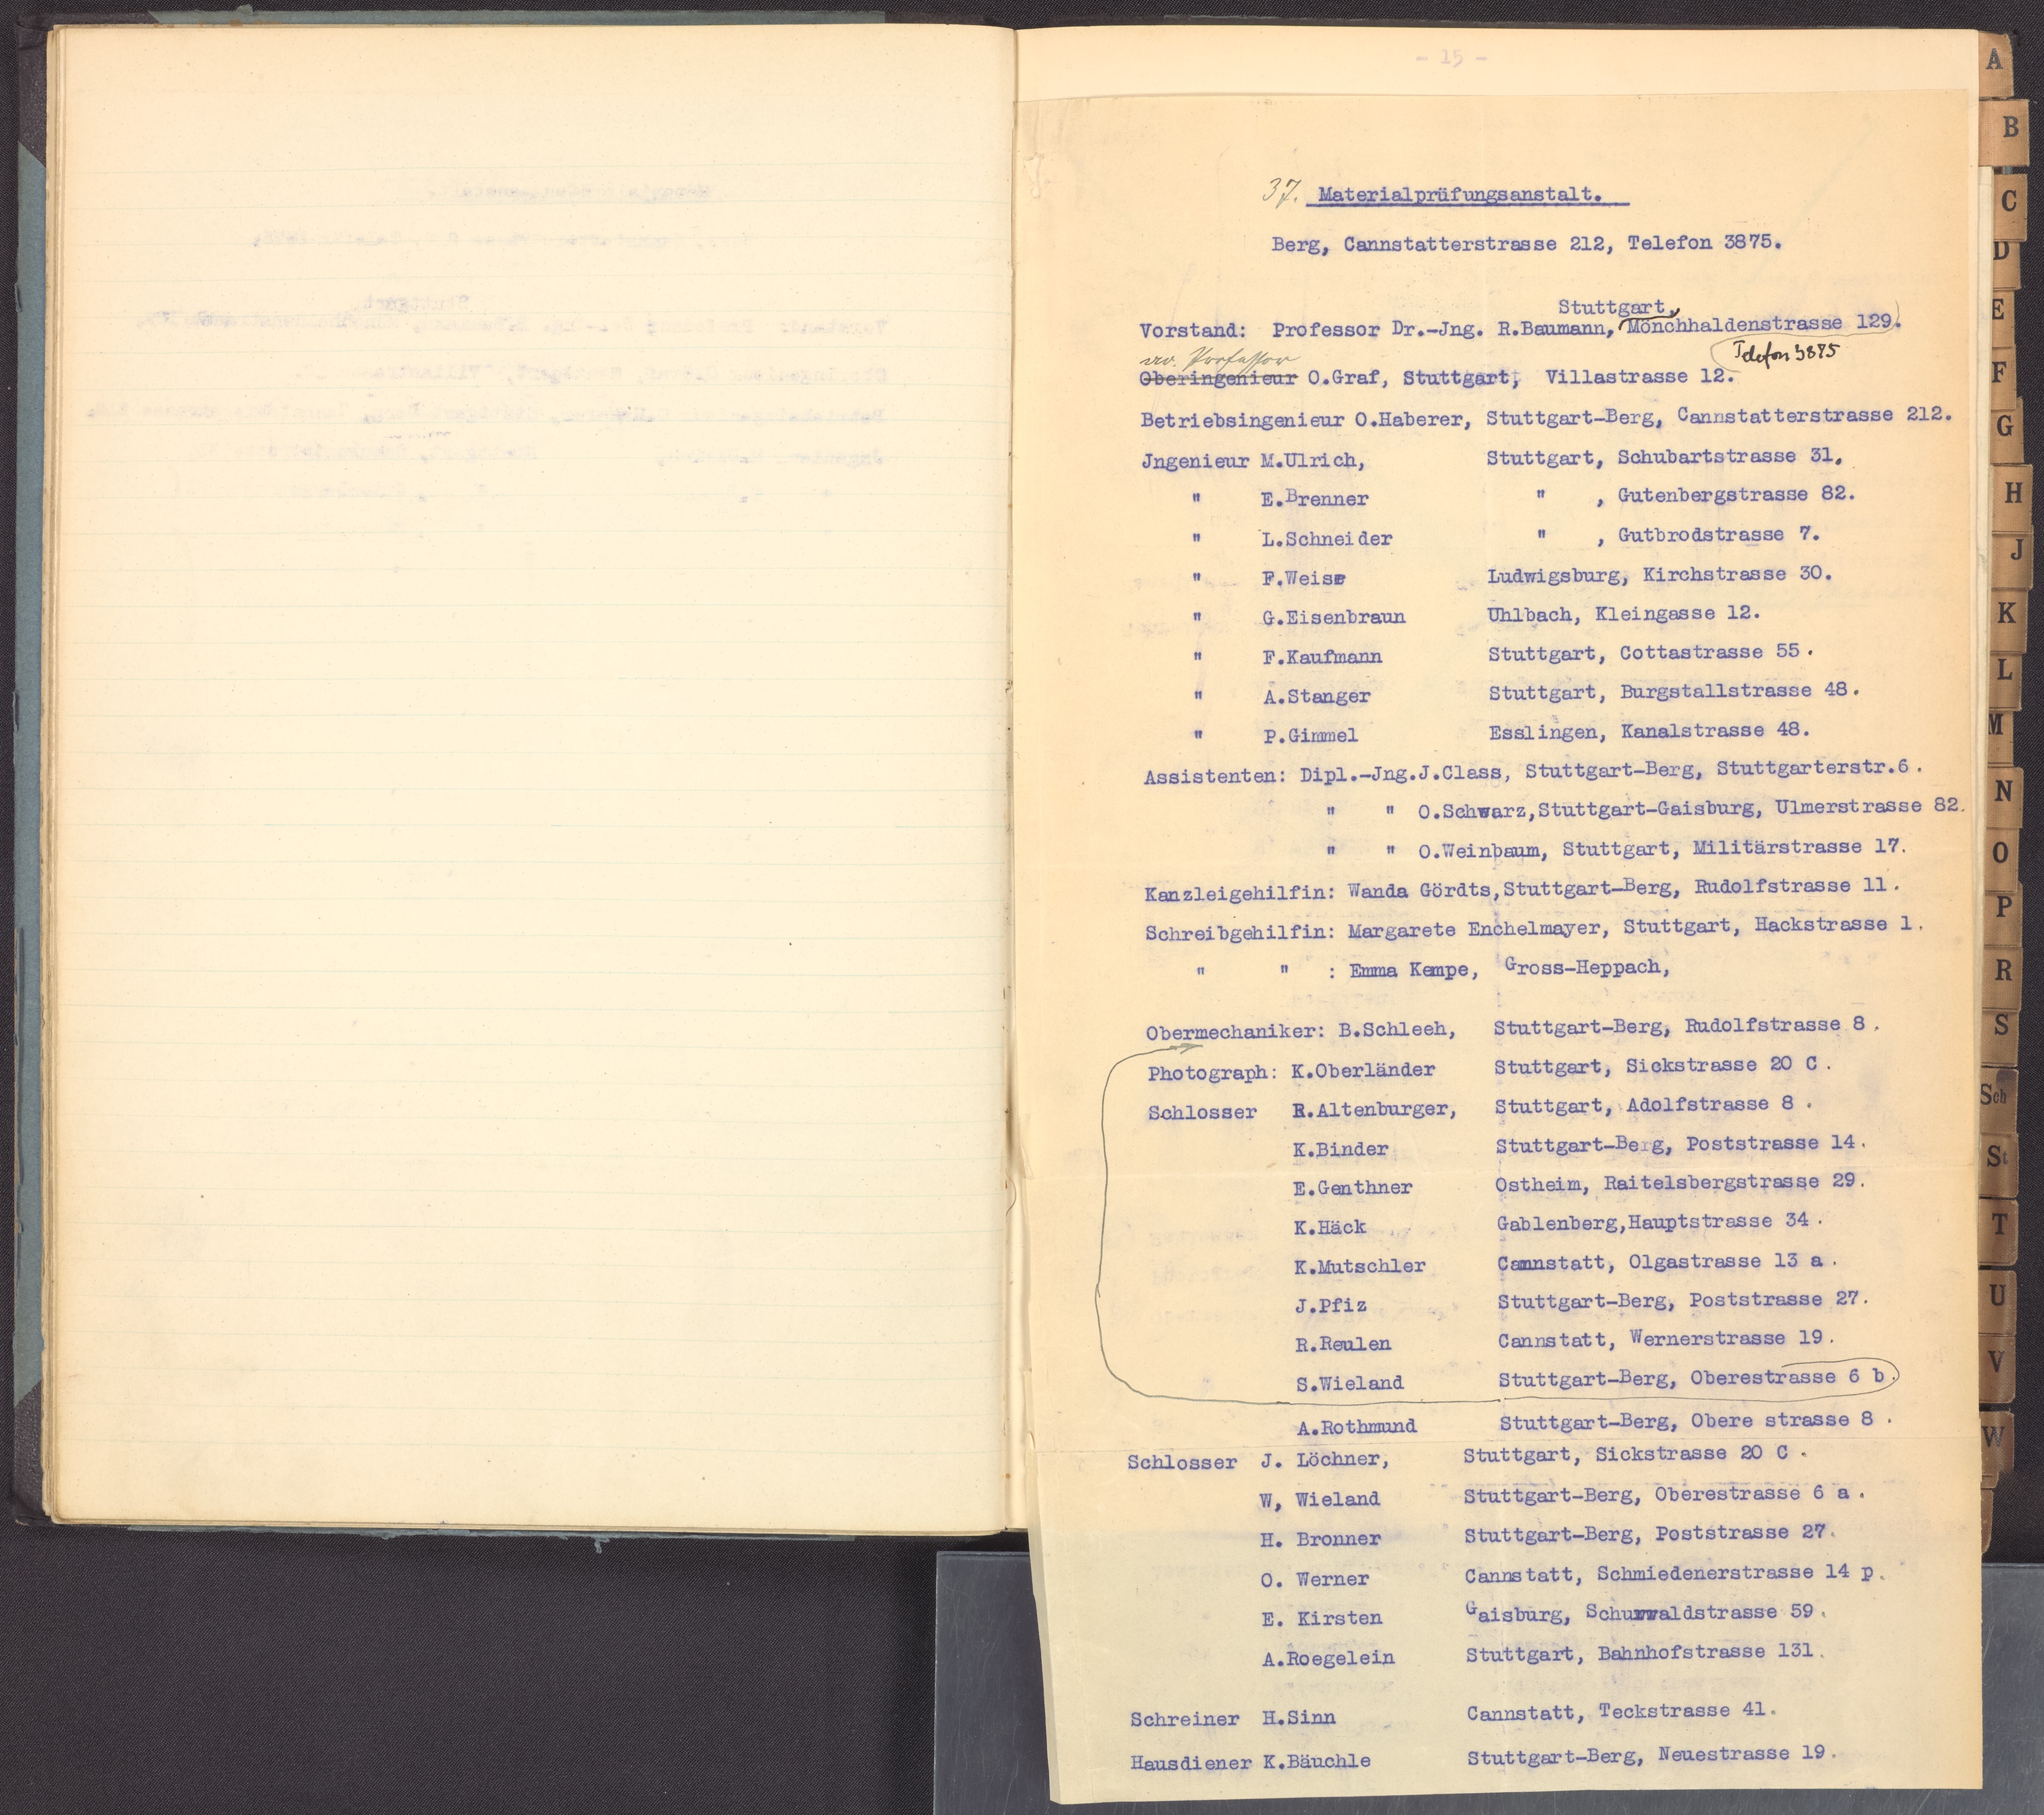 - 15 -
37. Materialprüfungsanstalt.
Berg, Cannstatterstrasse 212, Telefon 3875.
Stuttgart,
Vorstand: Professor Dr.-Jng. R.Baumann, Mönchhaldenstrasse 129.
Telefon 3875
Professor
Oberingenieur O.Graf, Stuttgart, Villastrasse 12.
Betriebsingenieur O.Haberer, Stuttgart-Berg, Cannstatterstrasse 212.
Jngenieur M.Ulrich, Stuttgart, Schubartstrasse 31.
" E.Brenner " , Gutenbergstrasse 82.
" L.Schneider " , Gutbrodstrasse 7.
" F.Weise Ludwigsburg, Kirchstrasse 30.
" G.Eisenbraun Uhlbach, Kleingasse 12.
" F.Kaufmann Stuttgart, Cottastrasse 55.
" A.Stanger Stuttgart, Burgstallstrasse 48.
" P.Gimmel Esslingen, Kanalstrasse 48.
Assistenten: Dipl.-Jng.J.Class, Stuttgart-Berg, Stuttgarterstr.6.
" " O.Schwarz,Stuttgart-Gaisburg, Ulmerstrasse 82.
" " O.Weinbaum, Stuttgart, Militärstrasse 17.
Kanzleigehilfin: Wanda Gördts,Stuttgart-Berg, Rudolfstrasse 11.
Schreibgehilfin: Margarete Enchelmayer, Stuttgart, Hackstrasse 1.
" " : Emma Kempe, Gross-Heppach,
Obermechaniker: B.Schleeh, Stuttgart-Berg, Rudolfstrasse 8.
Photograph: K.Oberländer Stuttgart, Sickstrasse 20 C.
Schlosser R.Altenburger, Stuttgart, Adolfstrasse 8.
K.Binder Stuttgart-Berg, Poststrasse 14.
E.Genthner Ostheim, Raitelsbergstrasse 29.
K.Häck Gablenberg,Hauptstrasse 34.
K.Mutschler Cannstatt, Olgastrasse 13 a.
J.Pfiz Stuttgart-Berg, Poststrasse 27.
R.Reulen Cannstatt, Wernerstrasse 19.
S.Wieland Stuttgart-Berg, Oberestrasse 6 b.
A.Rothmund Stuttgart-Berg, Obere strasse 8.
Schlosser J. Löchner, Stuttgart, Sickstrasse 20 C.
W, Wieland Stuttgart-Berg, Oberestrasse 6 a.
H. Bronner Stuttgart-Berg, Poststrasse 27.
O. Werner Cannstatt, Schmiedenerstrasse 14 p.
E. Kirsten Gaisburg, Schurwaldstrasse 59.
A.Roegelein Stuttgart, Bahnhofstrasse 131.
Schreiner H.Sinn Cannstatt, Teckstrasse 41.
Hausdiener K.Bäuchle Stuttgart-Berg, Neuestrasse 19.
A
B
C
D
E
F
G
H
J
K
L
M
N
O
P
R
S
Sch
St
T
U
V
W